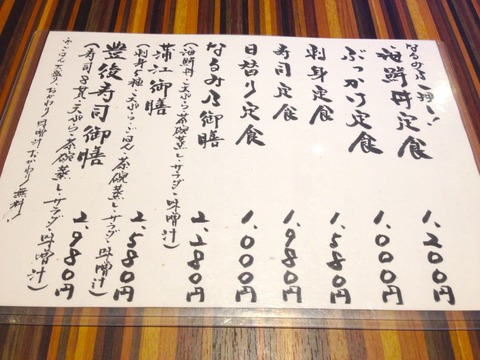 なるみ乃一押し!
海鮮丼定食 1,200円
ぶっかけ定食 1,000円
刺身定食 1,580円
寿司定食 1,980円
日替り定食 1,000円
なるみ乃御膳 2,280円
(海鮮丼・天ぷら・茶碗蒸し・サラダ・味噌汁)
蒲江御膳 2,580円
(刺身5種・天ぷら・ごはん・茶碗蒸し・サラダ・味噌汁)
豊後寿司御膳 2,980円
(寿司8貫・天ぷら・茶碗蒸し・サラダ・味噌汁)
ごはん大盛り・おかわり 味噌汁おかわり 無料!